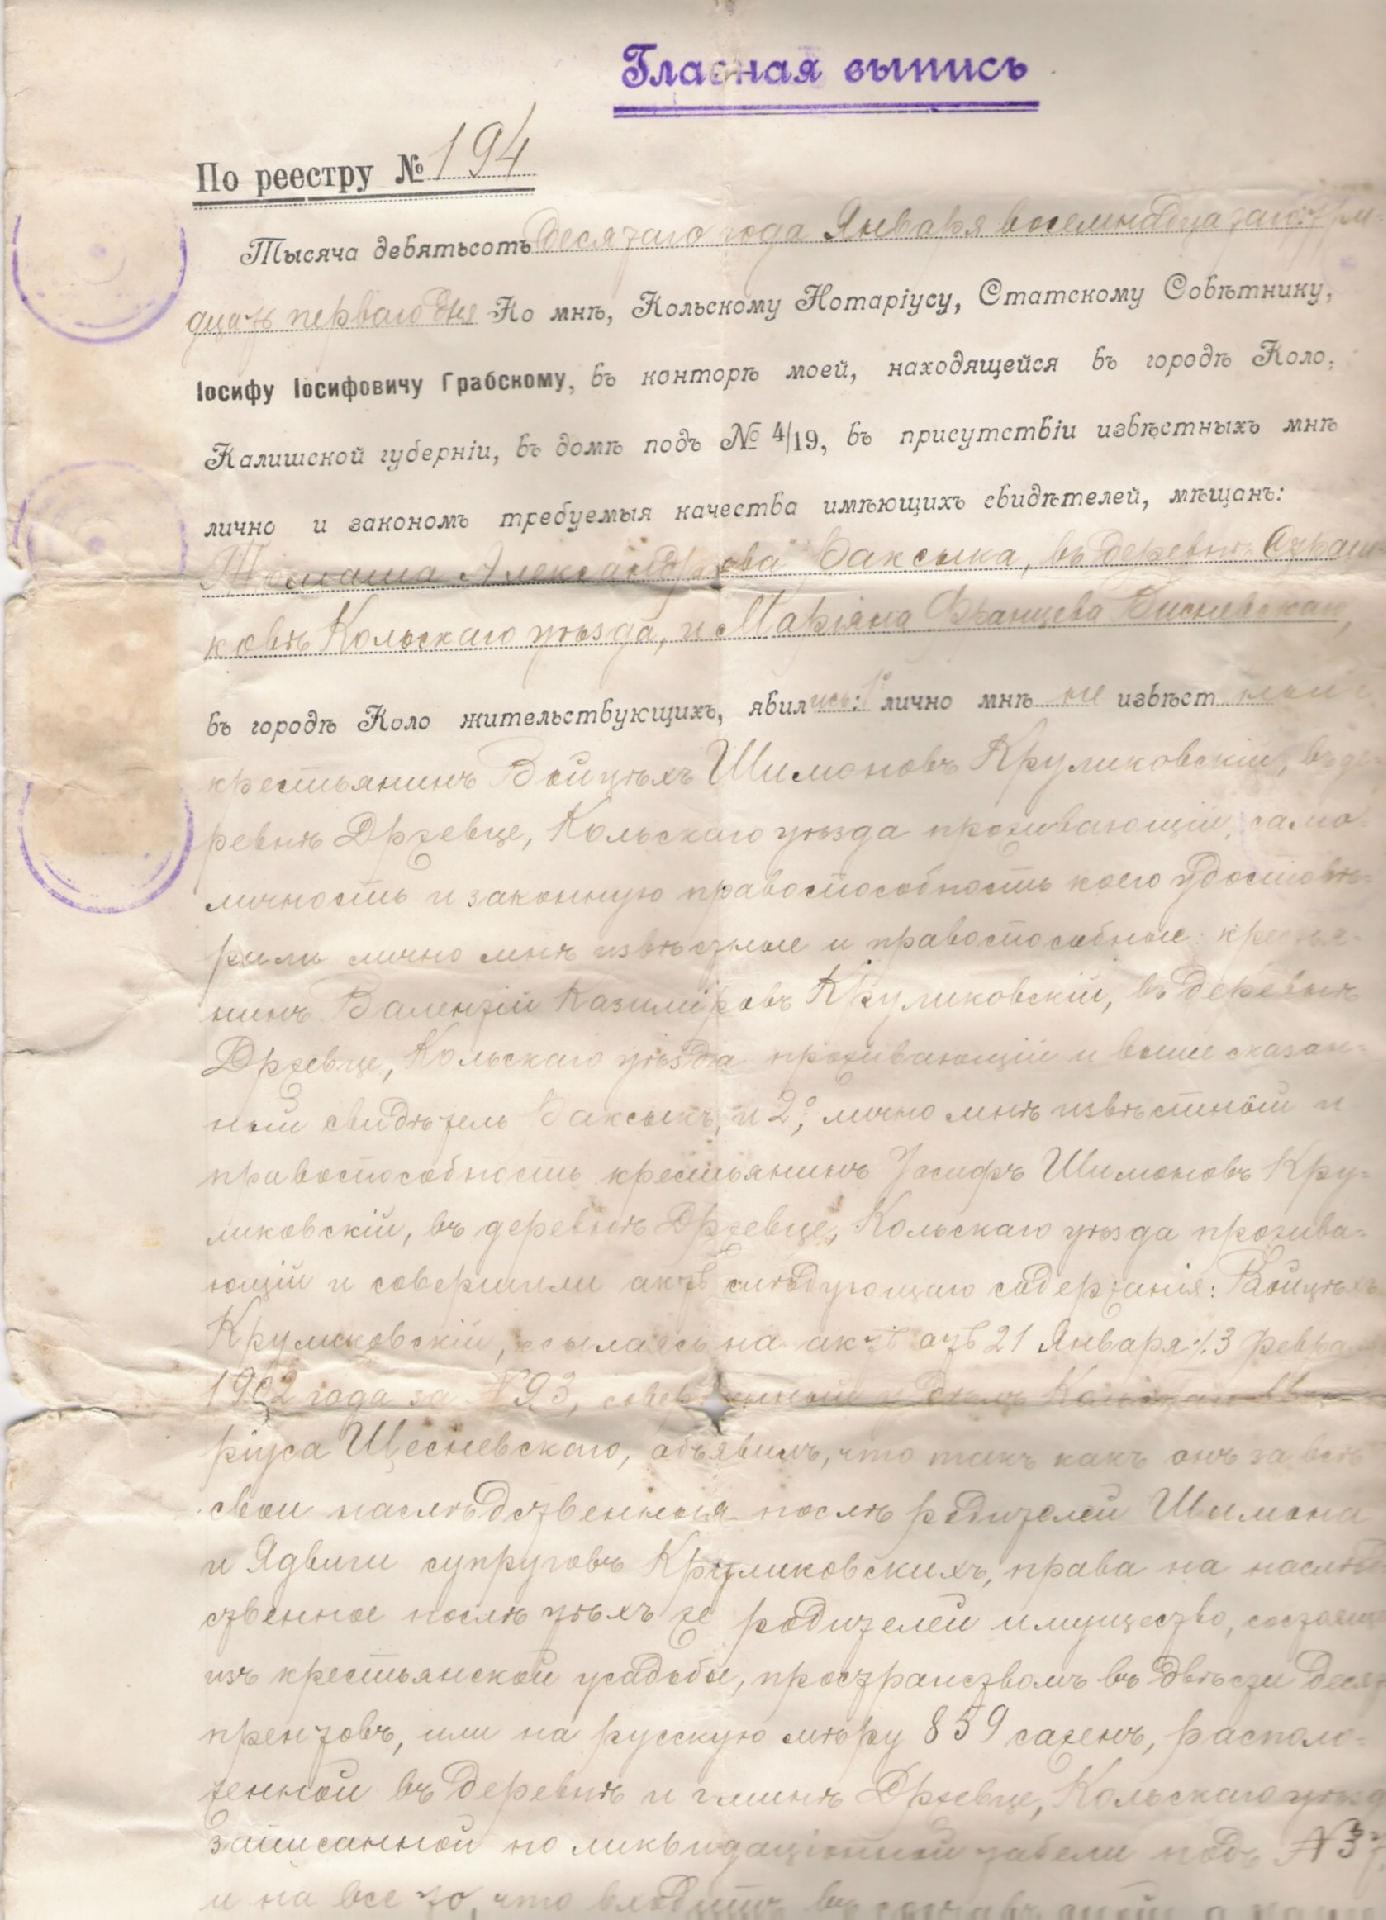 Главная выпись
По реестру № 194
Тысяча девятьсотъ десятаго года Января восемнадцатаго/три-
дцать перваго дня Ко мнѣ, Кольскому Нотаріусу, Статскому Совѣтнику,
Іосифу Іосифовичу Грабскому, въ конторѣ моей, находящейся въ городѣ Коло,
Калишской губерніи, въ домѣ подъ № 4/19, въ присутствіи извѣстныхъ мнѣ
лично и закономъ требуемыя качества имѣющихъ свидѣтелей, мѣщанъ:
Томаша Александрова Баксыка, въ деревнѣ
ковѣ Кольскаго уѣзда, и Маріяна Францева Висневскаго,
въ городѣ Коло жительствующихъ, явились: 1° лично мнѣ не извѣстный
крестьянинъ Войцѣхъ Шимоновъ Круликовскій, въ де-
ревнѣ Држевце, Кольскаго уѣзда проживающій, само-
личность и законную правоспособность коего удостовѣ-
рили лично мнѣ извѣстные и правоспособные: крестья-
нинъ Валентій Казиміровъ Круликовскій, въ деревнѣ
Држевце, Кольскаго уѣзда проживающій и выше сказан-
ный свидѣтель Баксыкъ, и 2°, лично мнѣ извѣстный и
правоспособность крестьянинъ Іосифъ Шимоновъ Кру-
ликовскій, въ деревнѣ Држевце, Кольскаго уѣзда прожива-
ющій и совершили актъ слѣдующаго содержанія: Войцѣхъ
Круликовскій, ссылаясь на актъ отъ 21 Января/3 Февраля
1902 года за № 93, совершенный у Кольскаго Нота-
ріуса Щесневскаго, объявилъ, что такъ какъ онъ за всѣ
свои наслѣдственныя послѣ родителей Шимона
и Ядвиги супруговъ Круликовскихъ, права на наслѣд-
ственное послѣ тѣхъ же родителей имущество, состояще
изъ крестьянской усадьбы, пространствомъ въ двѣсти десят
прентовъ, или на русскую мѣру 859 сажень, располо-
женной въ деревнѣ и гминѣ Држевце, Кольскаго уѣзда
записанной по ликвидаціонной табели подъ №
и на все то, что входитъ въ составъ